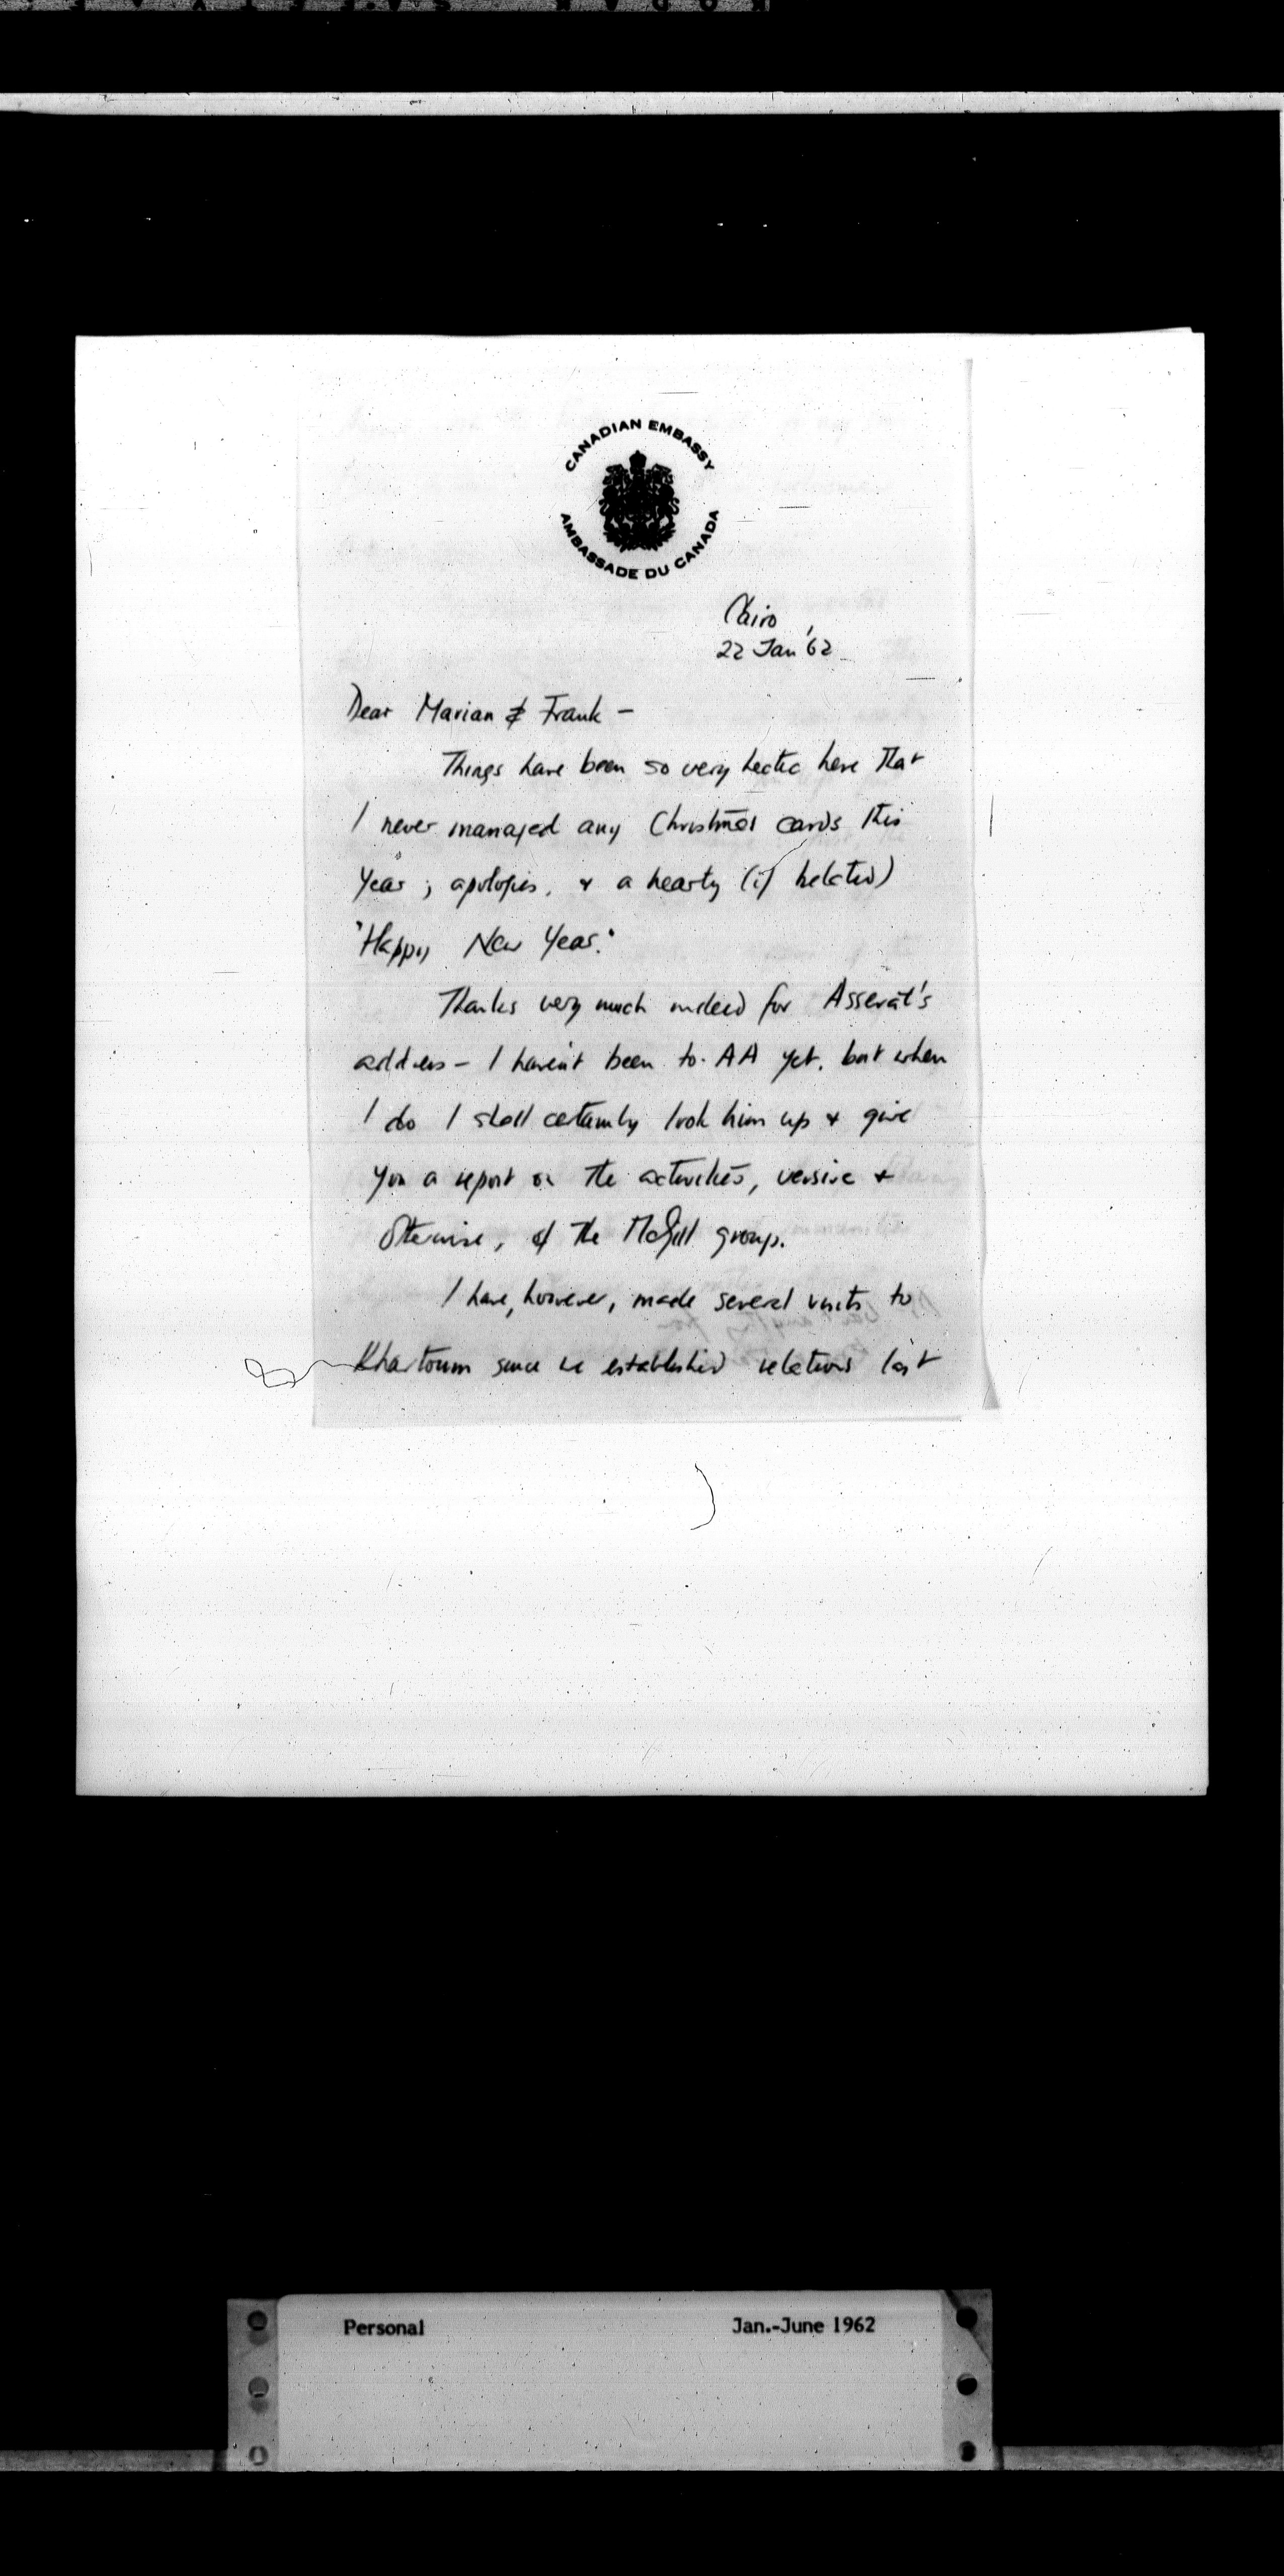 CANADIAN EMBASSY
AMBASSADE DU CANADA
Cairo,
22 Jan '62
Dear Marian & Frank –
Things have been so very hectic here that
I never managed any Christmas cards this
year; apologies, & a hearty (if belated)
"Happy New Year."
Thanks very much indeed for Asserat's
address – I haven't been to AA yet, but when
I do I shall certainly look him up & give
you a report on the activities, versive &
otherwise, of the McGill group.
I have, however, made several visits to
Khartoum since we established relations last
Personal Jan.-June 1962